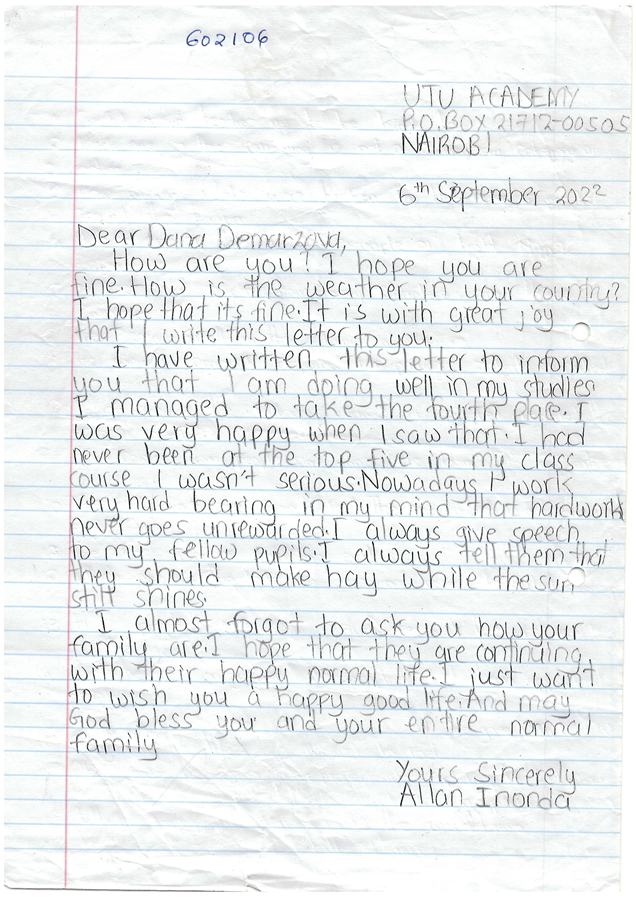 602106
UTU ACADEMY
P.O. BOX 21712-00505
NAIROBI
6th September 2022
Dear Dana Demarzova,
How are you? I hope you are
fine. How is the weather in your country?
I hope that its fine. It is with great joy
that I write this letter to you.
I have written this letter to inform
you that I am doing well in my studies
I managed to take the fourth place. I
was very happy when I saw that. I had
never been at the top five in my class
course I wasn't serious. Nowadays I work
very hard bearing in my mind that hardwork
never goes unrewarded. I always give speech
to my fellow pupils. I always tell them that
they should make hay while the sun
still shines.
I almost forgot to ask you how your
family are. I hope that they are continuing
with their happy normal life. I just want
to wish you a happy good life. And may
God bless you and your entire normal
family
Yours Sincerely
Allan Inonda